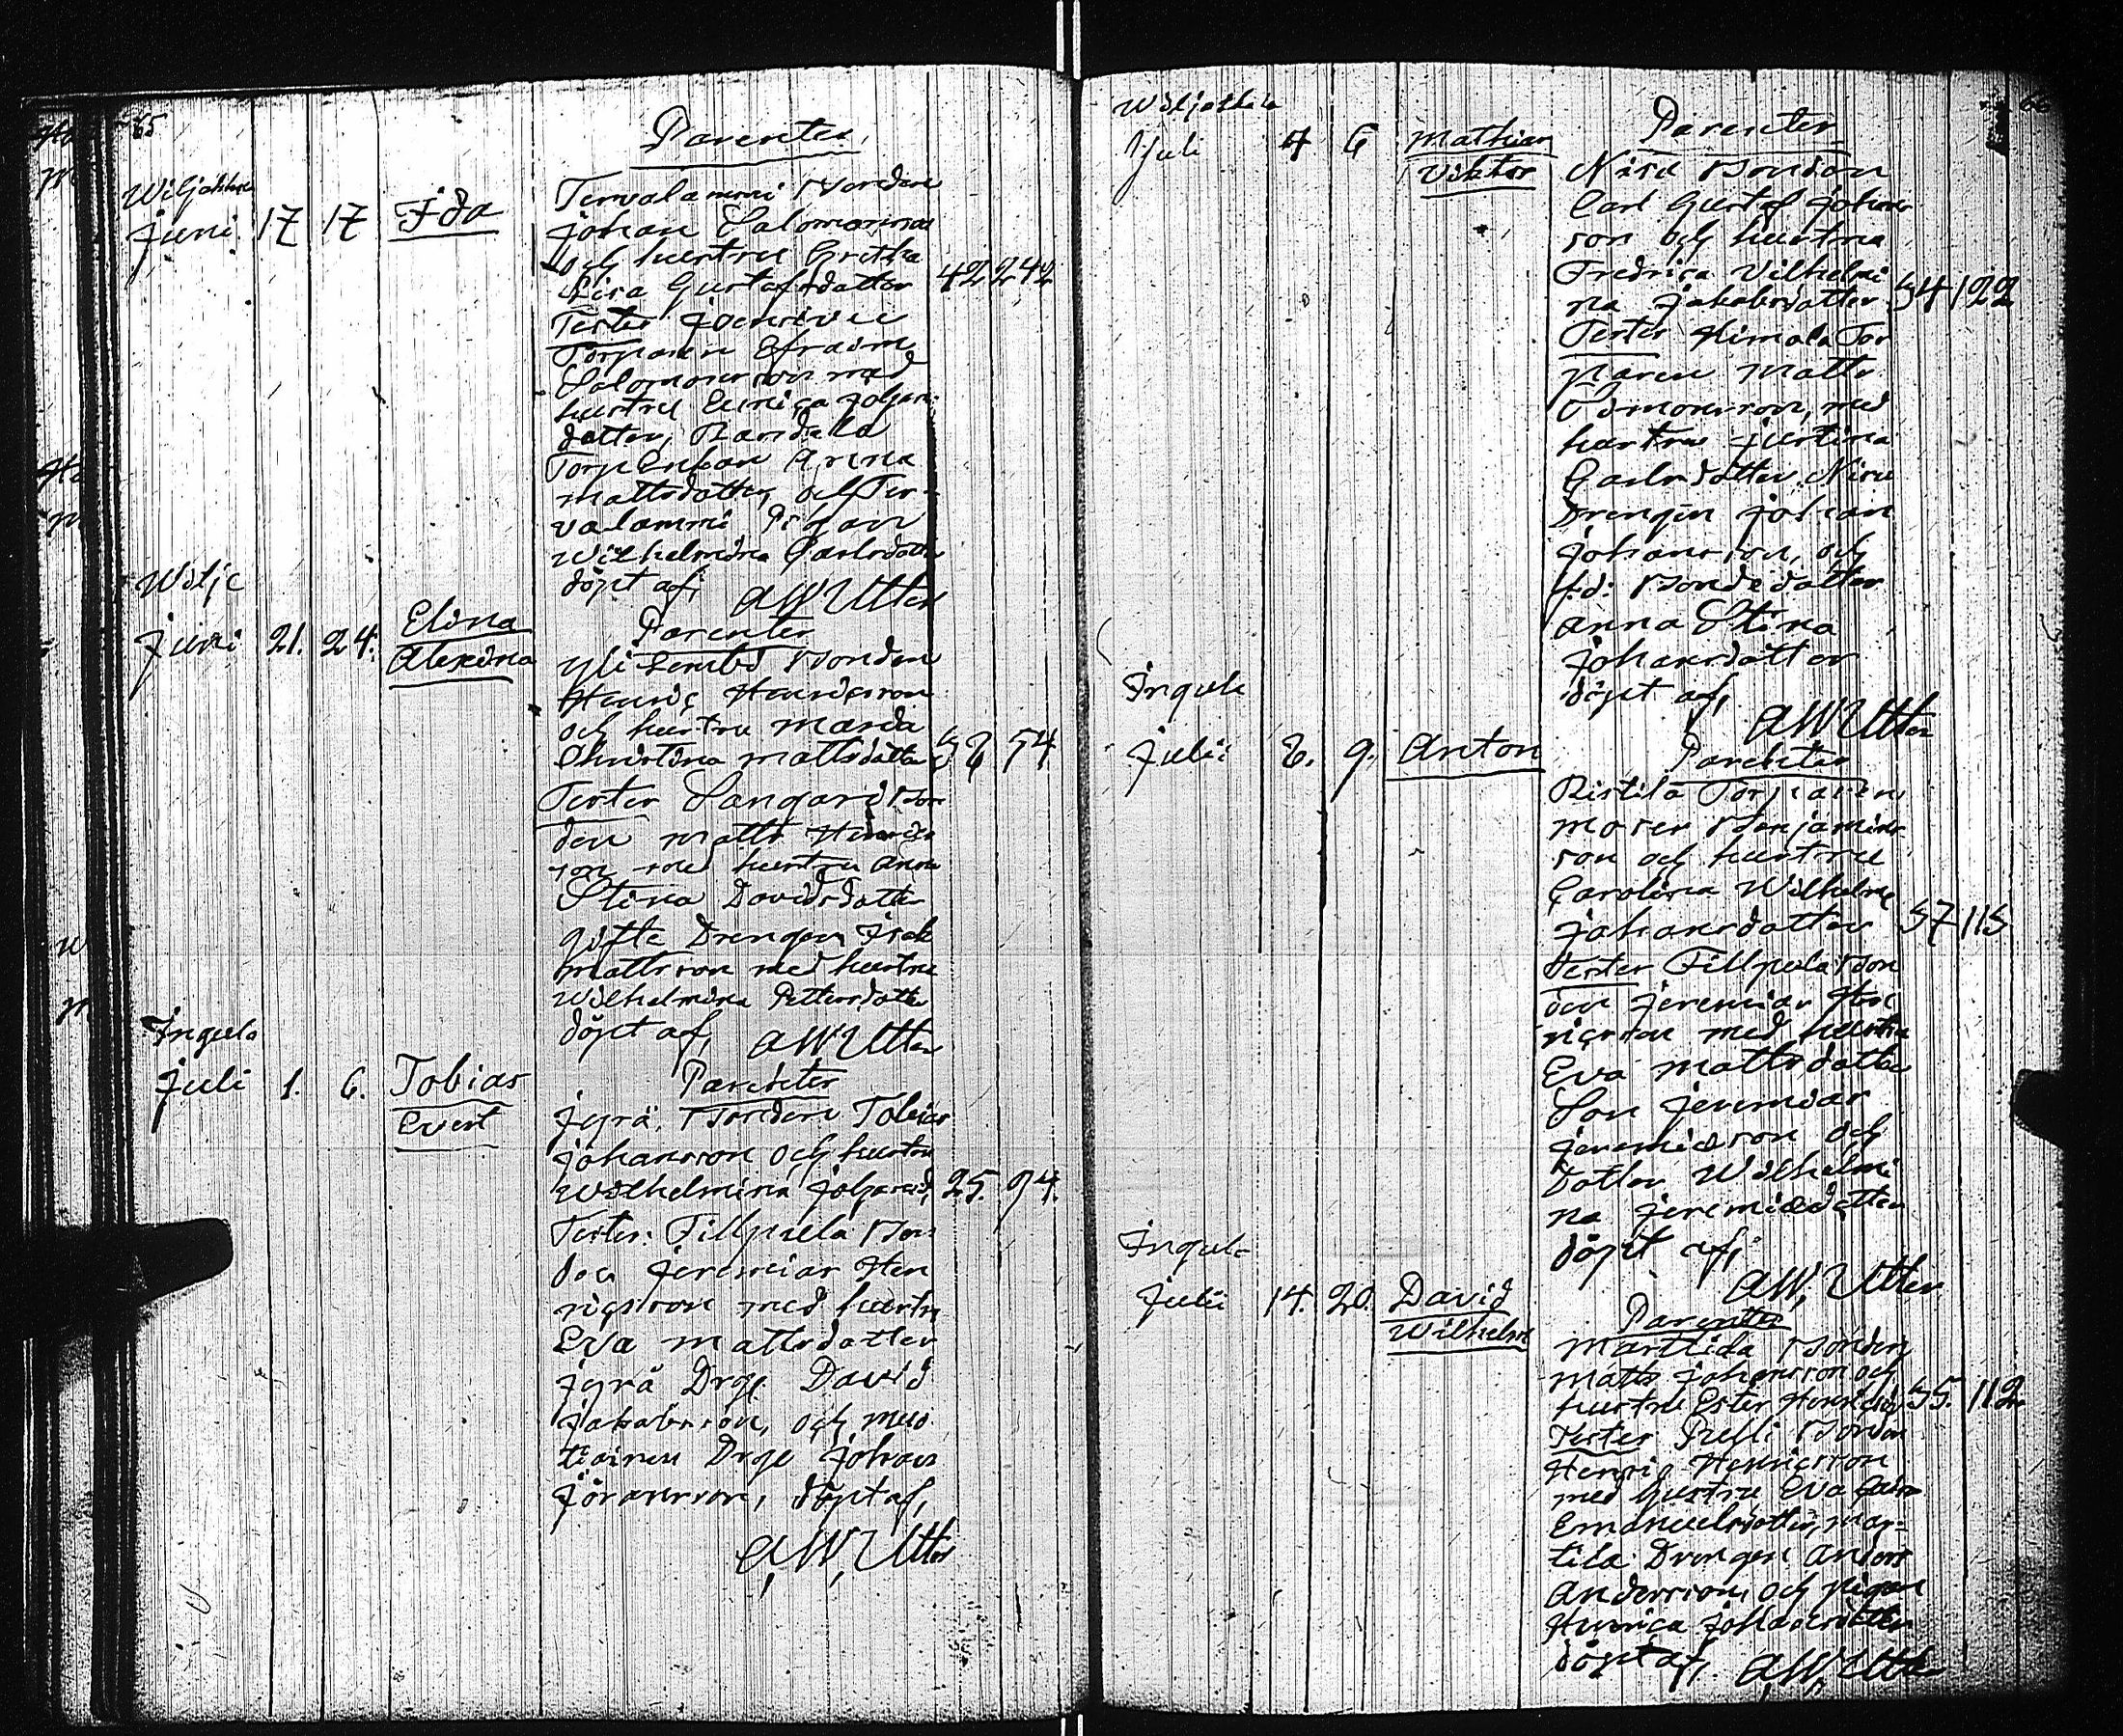 65
Parenter
Wiljakkala
Juni 17 17 Ida
Tervalammi Bonden
Johan Salomonsson
och hustru Gretha
Lisa Gustafsdotter 42 242
Tester
Torparen Efraim
Salomonsson med
hustru Enrica Johans
dotter,
Torp Enkan
Mattsdotter, och Ter-
valammi Pigan
Wilhelmina Carlsdotter
döpt af, AWUtter
Wilje
Juni 21. 24. Elina
Alexdina
Parenter
Yli Bonden
Henric Henricsson
och hustru Maria
Christina Mattsdotter 54
Tester Bon
den Matts Henrics
son med hustru Anna
Stina Davidsdotter
gifte Drengen Isak
Mattsson med hustru
Wilhelmina Pettersdotter
döpt af, AWUtter
Ingula
Juli 1. 6. Tobias
Evert
Parenter
Jyrä, Bonden Tobias
Johansson och hustru
Wilhelmina Johansd, 25. 94.
Tester: Fillpula Bon
den Jeremias Hen
ricsson med hustru
Eva Mattsdotter
Jyrä Drge. David
Jakobsson, och
Drge Johan
Göransson, döptaf,
A,W,Utter
Wiljakkala
Juli 4 6 Mathias
Viktor
Parenter
Nisu Bondon
Carl Gustaf Johans
son och hustru
Fredrica Vilhelmi
na Jakobsdotter 54 122
Tester Himala Tor
paren Matts
Simonsson, med
hustru Justina
Carlsdotter Nisu
Drengen Johan
Johansson, och
f.d: Bondedotter
Anna Stina
Johansdotter
döpt af,
AWUtter
Ingula
Julii 8. 9. Anton
Parenter
Ristila Torparen
Moses Benjamins
son och hustru
Carolina Wilhelmi
Johansdotter 57 115
Tester Fillpula Bon
den Jeremias Hen
ricsson med hustru
Eva Mattsdotter
Son Jeremias
Jeremiasson och
Dotter Wilhelmi
na Jeremiædotter
döpt af,
AW, Utter
Ingula
Julii 14. 20. David
Wilhelm
Parenter
Marttila Bonden
Matts Johansson och
hustru Ester Henricsd 55. 112.
Tester Pelli Bonden
Henric Henricsson
med hustru Eva
Emanuelsdotter, Mar-
tila Drengen Anders
Andersson, och pigan
Henrica Johansdotter
döptaf, AWUtter